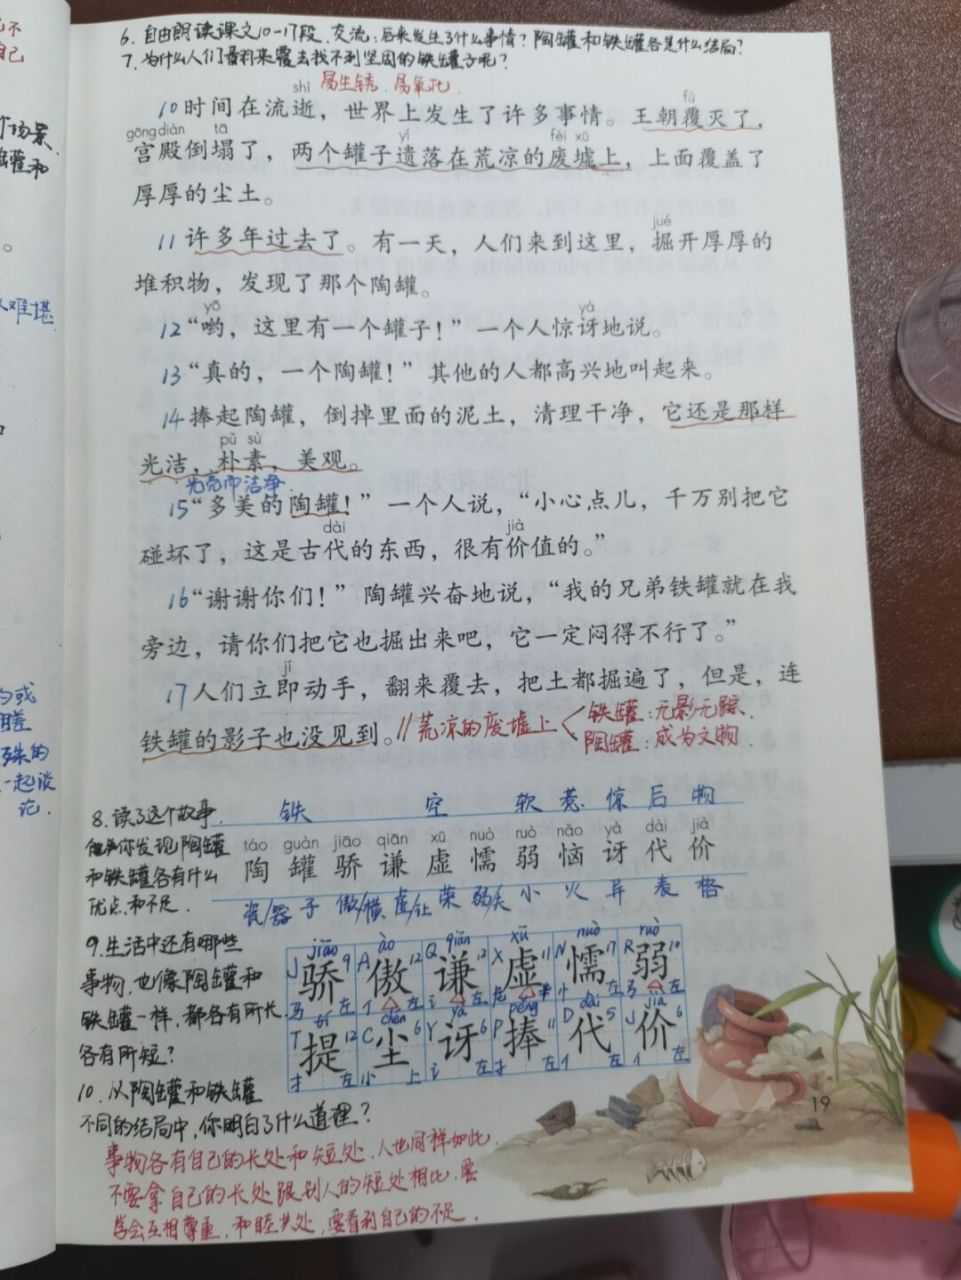 6. 自由朗读课文10-17段,交流:后来发生了什么事情?陶罐和铁罐各是什么结局?
7. 为什么人们翻来覆去找不到坚固的铁罐子呢?
易生锈、易氧化
shì fù
10 时间在流逝,世界上发生了许多事情。王朝覆灭了,
gōng diàn tā yí fèi xū
宫殿倒塌了,两个罐子遗落在荒凉的废墟上,上面覆盖了
厚厚的尘土。
jué
11 许多年过去了。有一天,人们来到这里,掘开厚厚的
堆积物,发现了那个陶罐。
yō yà
12 “哟,这里有一个罐子!”一个人惊讶地说。
13 “真的,一个陶罐!”其他的人都高兴地叫起来。
14 捧起陶罐,倒掉里面的泥土,清理干净,它还是那样
pǔ sù
光洁,朴素,美观。
光亮而洁净
15 “多美的陶罐!”一个人说,“小心点儿,千万别把它
dài jià
碰坏了,这是古代的东西,很有价值的。”
16 “谢谢你们!”陶罐兴奋地说,“我的兄弟铁罐就在我
旁边,请你们把它也掘出来吧,它一定闷得不行了。”
jí
17 人们立即动手,翻来覆去,把土都掘遍了,但是,连
铁罐的影子也没见到。
// 荒凉的废墟上
铁罐:无影无踪.
陶罐:成为文物.
8. 读了这个故事.
你发现陶罐
和铁罐各有什么
优点和不足.
铁 空 软 惹 惊 后 物
táo guàn jiāo qiān xū nuò ruò nǎo yà dài jià
陶 罐 骄 谦 虚 懦 弱 恼 讶 代 价
瓷/器 子 傲/横 虚/让 荣 弱/夫 小 火 异 表 格
9. 生活中还有哪些
事物,也像陶罐和
铁罐一样,都各有所长.
各有所短?
jiāo ào qiān xū nuò ruò
J 9 A 12 Q 12 X 11 N 17 R 10
骄 傲 谦 虚 懦 弱
马 左 亻 左 讠 左 虍 忄 左 弓 左
chén yà pěng dài jià
T 12 C 6 Y 6 P 11 D 5 J 6
提 尘 讶 捧 代 价
扌 左 小 上 讠 左 扌 左 亻 左 亻 左
10. 从陶罐和铁罐
不同的结局中,你明白了什么道理?
事物各有自己的长处和短处,人也同样如此,
不要拿自己的长处跟别人的短处相比,要
学会互相尊重,和睦共处,要看到自己的不足.
19
不
自己
个场景、
罐和
人难堪
或
瞎
殊的
一起谈
论.